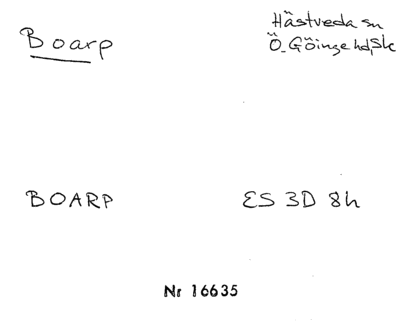 Boarp
Hästveda sn
Ö. Göinge hd, Sk
BOARP
ES 3D 8h
Nr 16635